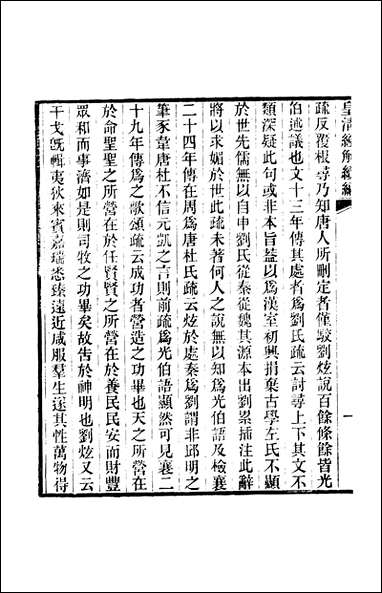 皇清經解續編
一
疏反覆根尋乃知唐人所刪定者僅駁劉炫說百餘條餘皆光
伯述議也文十三年傳其處者爲劉氏疏云討尋上下其文不
類深疑此句或非本旨蓋以爲漢室初興捐棄古學左氏不顯
於世先儒無以自申劉氏從秦從魏其源本出劉累插注此辭
將以求媚於世此疏未著何人之說無以知爲光伯語及檢襄
二十四年傳在周爲唐杜氏疏云炫於處秦爲劉謂非邱明之
筆豕韋唐杜不信元凱之言則前疏爲光伯語顯然可見襄二
十九年傳爲之歌頌疏云成功者營造之功畢也天之所營在
於命聖聖之所營在於任賢賢之所營在於養民民安而財豐
眾和而事濟如是則司牧之功畢矣故告於神明也劉炫又云
干戈旣輯夷狄來賓嘉瑞悉臻遠近咸服羣生遂其性萬物得